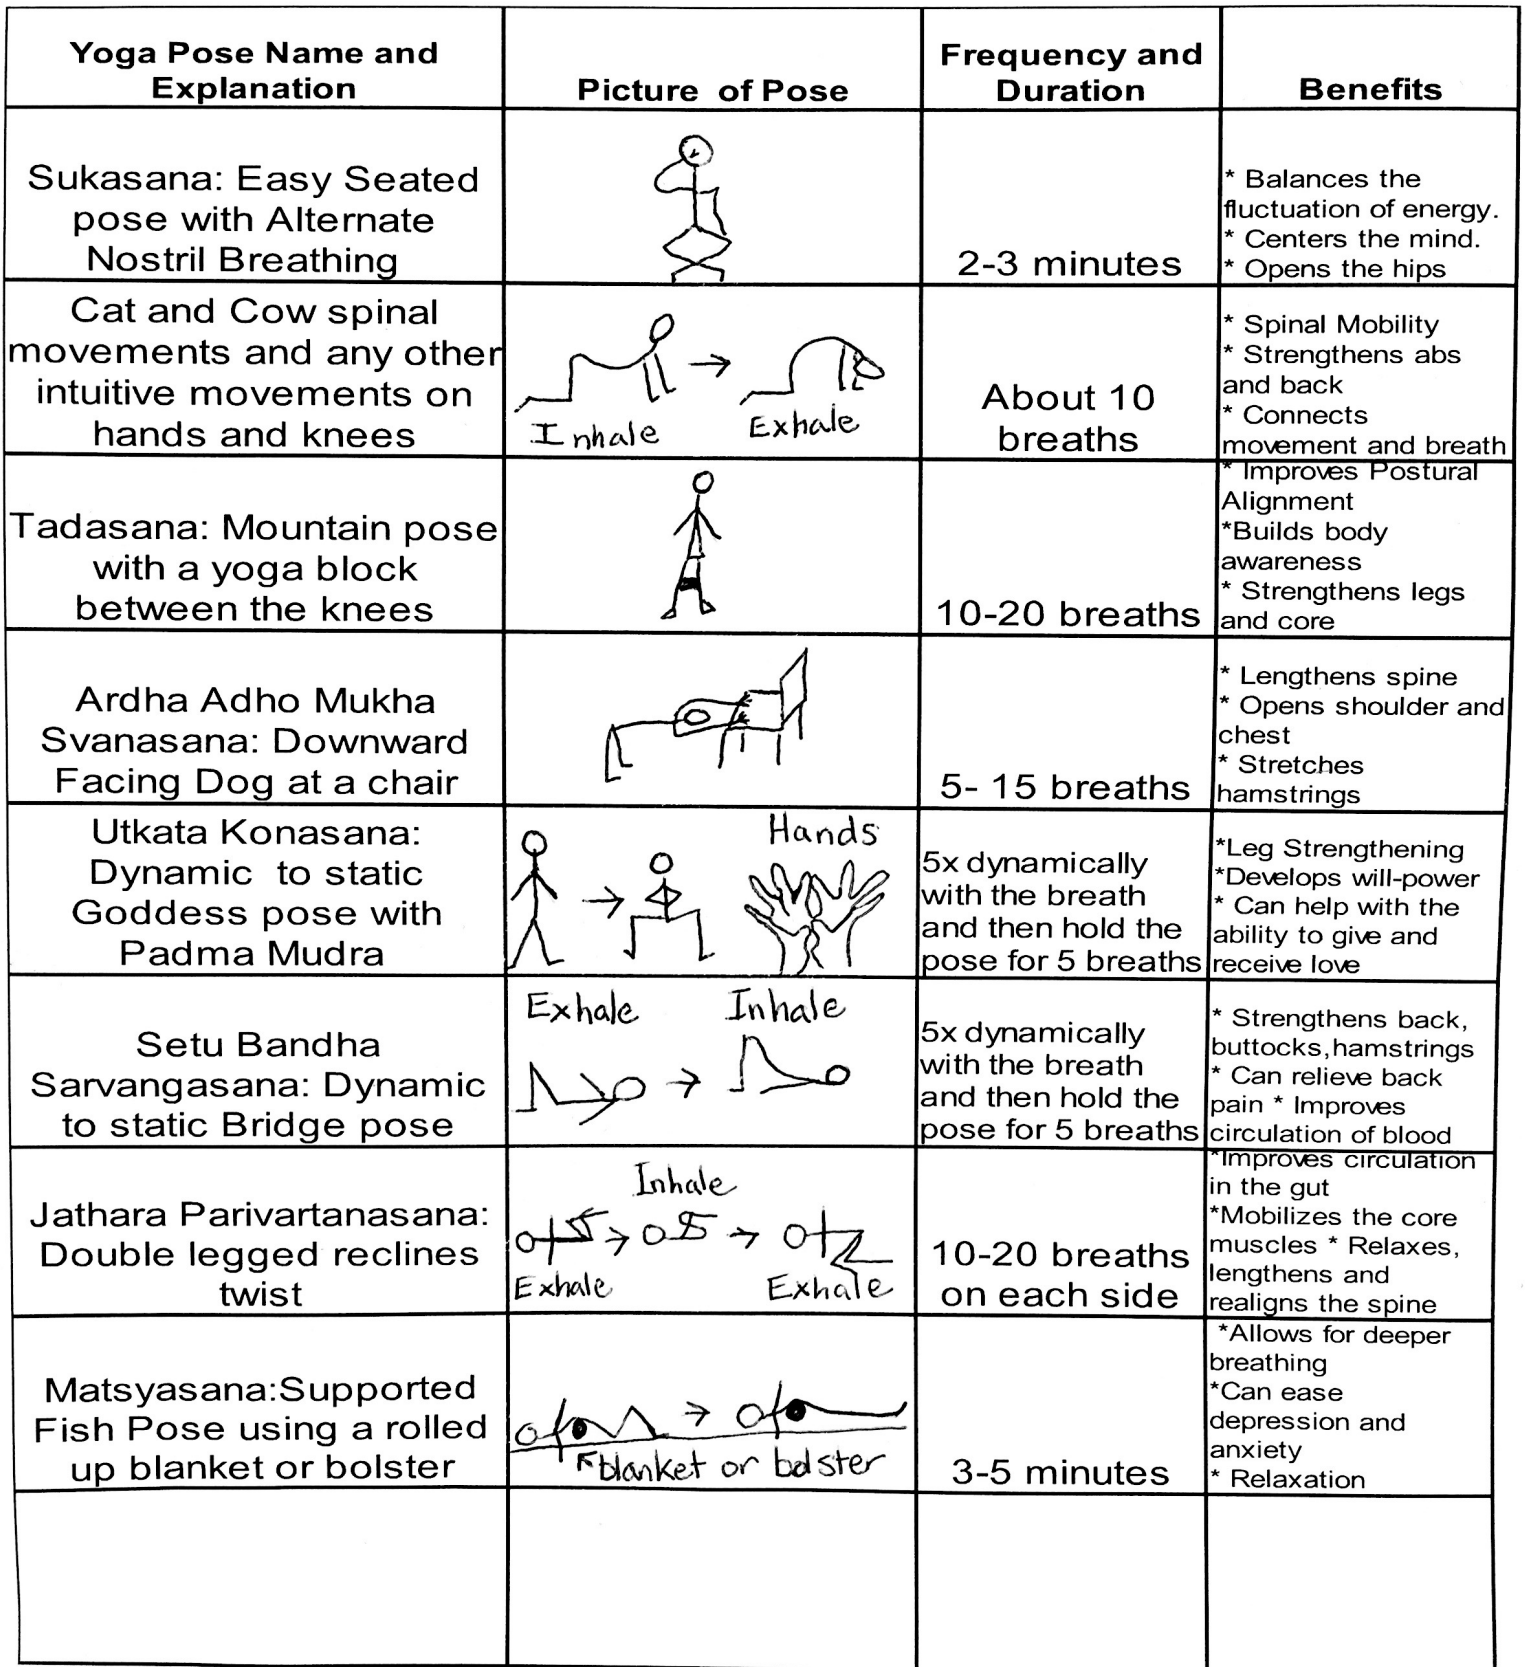 Yoga Pose Name and
Explanation
Picture of Pose
Frequency and
Duration
Benefits
Sukasana: Easy Seated
pose with Alternate
Nostril Breathing
2-3 minutes
* Balances the
fluctuation of energy.
* Centers the mind.
* Opens the hips
Cat and Cow spinal
movements and any other
intuitive movements on
hands and knees
Inhale
Exhale
About 10
breaths
* Spinal Mobility
* Strengthens abs
and back
* Connects
movement and breath
Tadasana: Mountain pose
with a yoga block
between the knees
10-20 breaths
* Improves Postural
Alignment
*Builds body
awareness
* Strengthens legs
and core
Ardha Adho Mukha
Svanasana: Downward
Facing Dog at a chair
5- 15 breaths
* Lengthens spine
* Opens shoulder and
chest
* Stretches
hamstrings
Utkata Konasana:
Dynamic to static
Goddess pose with
Padma Mudra
Hands
5x dynamically
with the breath
and then hold the
pose for 5 breaths
*Leg Strengthening
*Develops will-power
* Can help with the
ability to give and
receive love
Setu Bandha
Sarvangasana: Dynamic
to static Bridge pose
Exhale
Inhale
5x dynamically
with the breath
and then hold the
pose for 5 breaths
* Strengthens back,
buttocks,hamstrings
* Can relieve back
pain * Improves
circulation of blood
Jathara Parivartanasana:
Double legged reclines
twist
Inhale
Exhale
Exhale
10-20 breaths
on each side
*Improves circulation
in the gut
*Mobilizes the core
muscles * Relaxes,
lengthens and
realigns the spine
Matsyasana:Supported
Fish Pose using a rolled
up blanket or bolster
blanket or bolster
3-5 minutes
*Allows for deeper
breathing
*Can ease
depression and
anxiety
* Relaxation